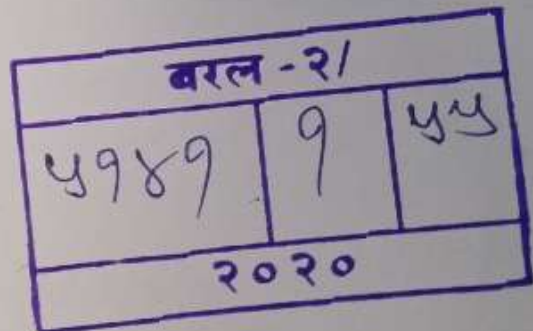 बरल - २/
५१४१ १ ५५
२०२०